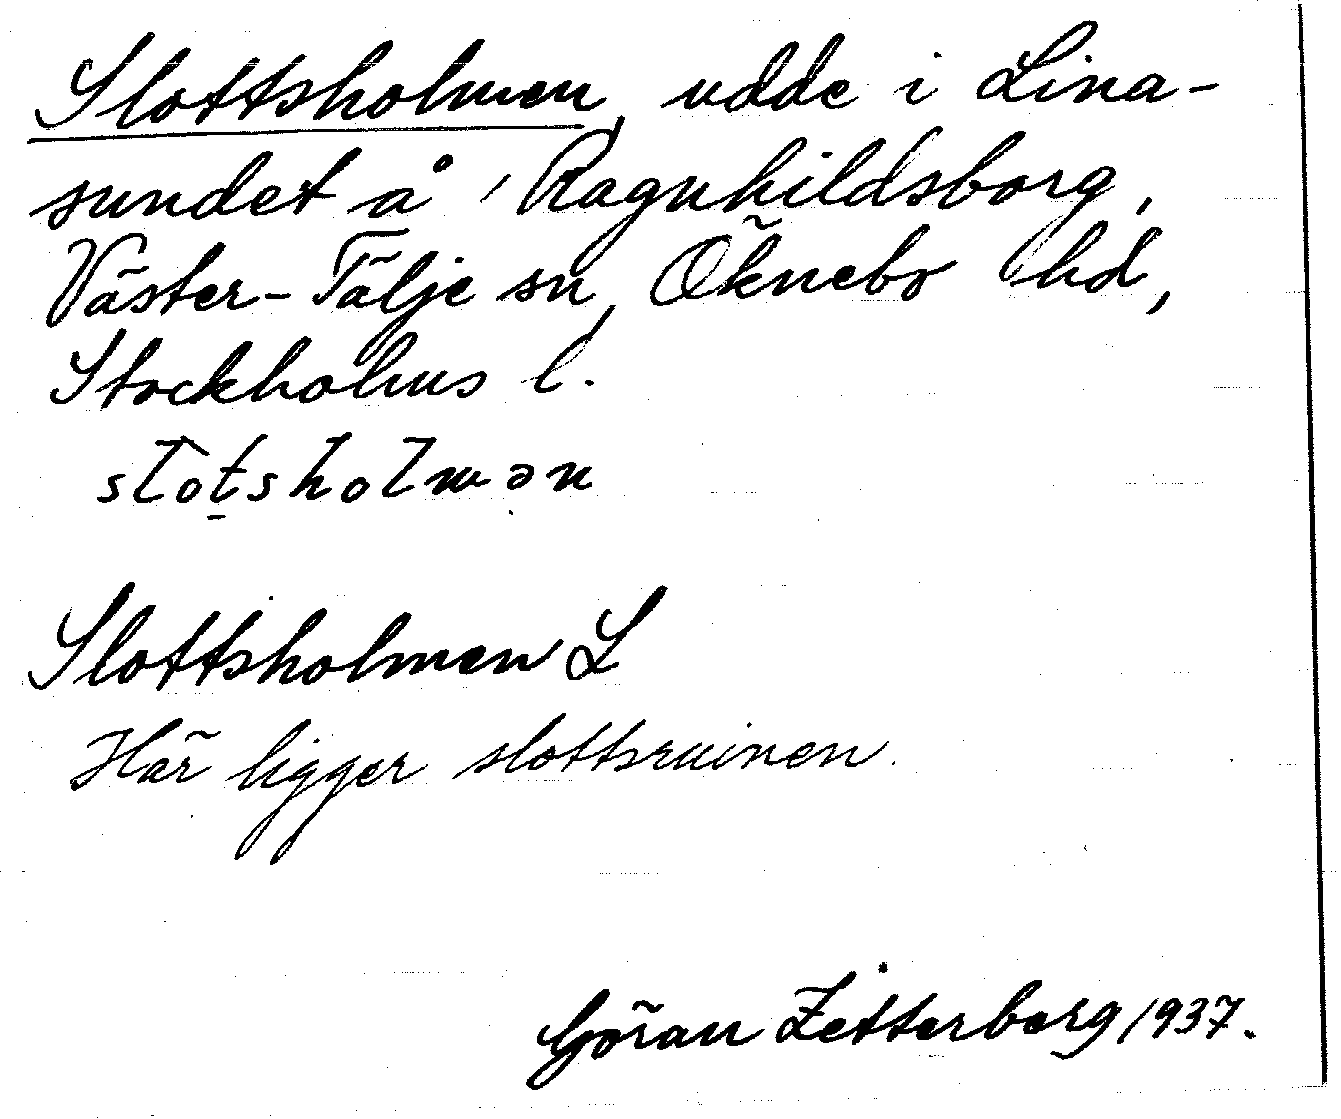 Slottsholmen, udde i Lina-
sundet å Ragnhildsborg,
Väster-Tälje sn, Öknebo hd,
Stockholms l.
slot̠sholmən
Slottsholmen L
Här ligger slottsruinen.
Göran Zetterberg 1937.